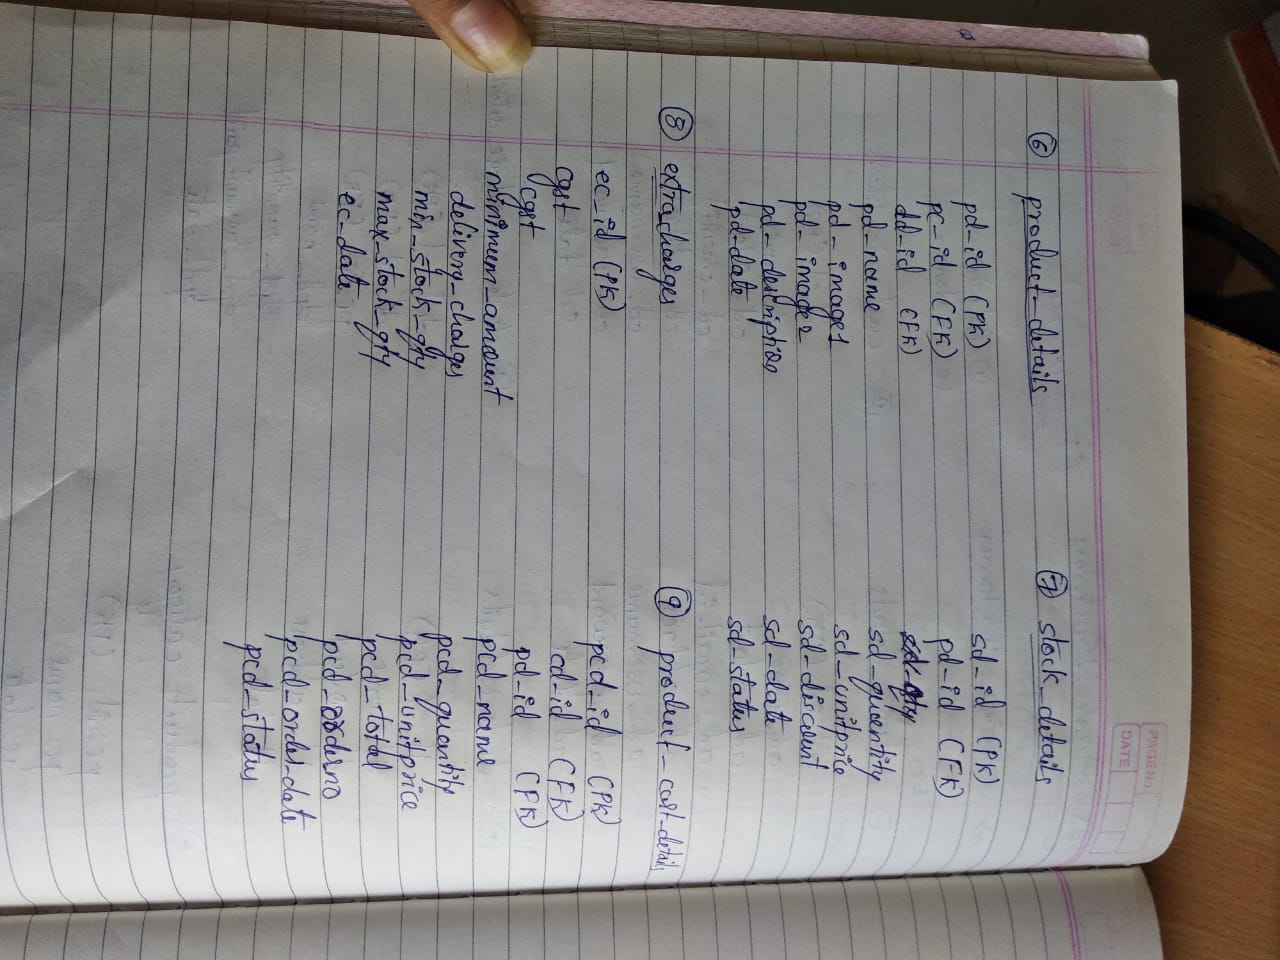 PAGE NO.
DATE
6 product_details
pd-id (PK)
pc-id (FK)
dd-id (FK)
pd-name
pd-image1
pd-image2
pd-description
pd-date
7 stock_details
sd-id (PK)
pd-id (FK)
sd-quantity
sd-unitprice
sd-discount
sd-date
sd-status
8 extra_charges
ec_id (PK)
cgst
cgst
minimum_amount
delivery_charges
min_stock_qty
max_stock_qty
ec-date
9 product-cart-details
pcd-id (PK)
cd-id (FK)
pd-id (FK)
pcd_name
pcd-quantity
pcd-unitprice
pcd-total
pcd-orderno
pcd-order-date
pcd-status